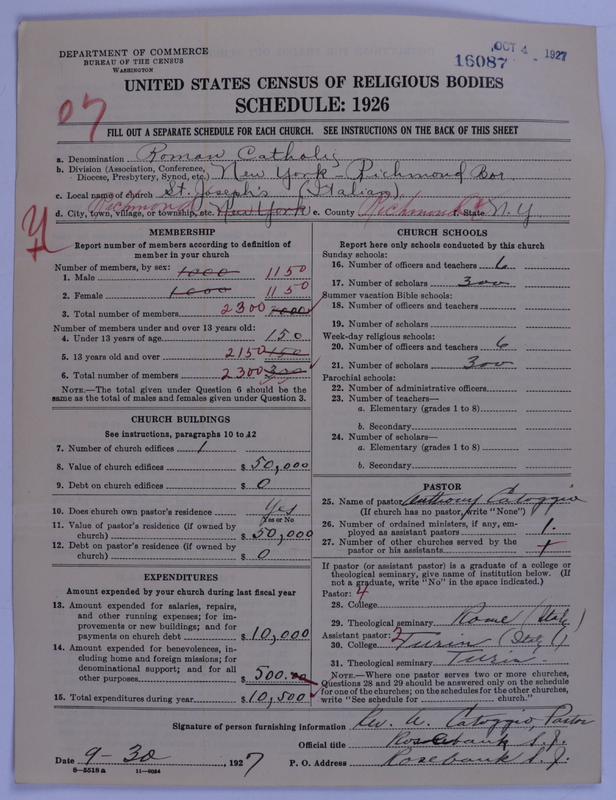 DEPARTMENT OF COMMERCE
BUREAU OF THE CENSUS
WASHINGTON
OCT 4 1927
16087
UNITED STATES CENSUS OF RELIGIOUS BODIES
SCHEDULE: 1926
FILL OUT A SEPARATE SCHEDULE FOR EACH CHURCH. SEE INSTRUCTIONS ON THE BACK OF THIS SHEET
a. Denomination Roman Catholic
b. Division (Association, Conference, Diocese, Presbytery, Synod, etc.) New York - Richmond Bor
c. Local name of church St. Joseph's (Italian)
d. City, town, village, or township, etc. Richmond New York e. County Richmond f. State N.Y.
MEMBERSHIP
Report number of members according to definition of
member in your church
Number of members, by sex:
1. Male 1000 1150
2. Female 1000 1150
3. Total number of members 2300 2000
Number of members under and over 13 years old:
4. Under 13 years of age 150
5. 13 years old and over 2150 150
6. Total number of members 2300 300
NOTE.—The total given under Question 6 should be the
same as the total of males and females given under Question 3.
CHURCH BUILDINGS
See instructions, paragraphs 10 to 12
7. Number of church edifices 1
8. Value of church edifices $ 50,000
9. Debt on church edifices $ 0
10. Does church own pastor's residence Yes
Yes or No
11. Value of pastor's residence (if owned by
church) $ 50,000
12. Debt on pastor's residence (if owned by
church) $ 0
EXPENDITURES
Amount expended by your church during last fiscal year
13. Amount expended for salaries, repairs,
and other running expenses; for im-
provements or new buildings; and for
payments on church debt $ 10,000
14. Amount expended for benevolences, in-
cluding home and foreign missions; for
denominational support; and for all
other purposes $ 500.00
15. Total expenditures during year $ 10,500
CHURCH SCHOOLS
Report here only schools conducted by this church
Sunday schools:
16. Number of officers and teachers 6
17. Number of scholars 300
Summer vacation Bible schools:
18. Number of officers and teachers
19. Number of scholars
Week-day religious schools:
20. Number of officers and teachers 6
21. Number of scholars 300
Parochial schools:
22. Number of administrative officers
23. Number of teachers—
a. Elementary (grades 1 to 8)
b. Secondary
24. Number of scholars—
a. Elementary (grades 1 to 8)
b. Secondary
PASTOR
25. Name of pastor Anthony Catoggio
(If church has no pastor, write "None")
26. Number of ordained ministers, if any, em-
ployed as assistant pastors 1.
27. Number of other churches served by the
pastor or his assistants 1
If pastor (or assistant pastor) is a graduate of a college or
theological seminary, give name of institution below. (If
not a graduate, write "No" in the space indicated.)
Pastor: 4
28. College
29. Theological seminary Rome (Italy)
Assistant pastor: 2
30. College Turin (Italy)
31. Theological seminary Turin
NOTE.—Where one pastor serves two or more churches,
Questions 28 and 29 should be answered only on the schedule
for one of the churches; on the schedules for the other churches,
write "See schedule for church."
Signature of person furnishing information Rev. A. Catoggio, Pastor
Official title Rosebank S.I.
Date 9-30, 1927 P. O. Address Rosebank S.I.
8—5518a 11—9024